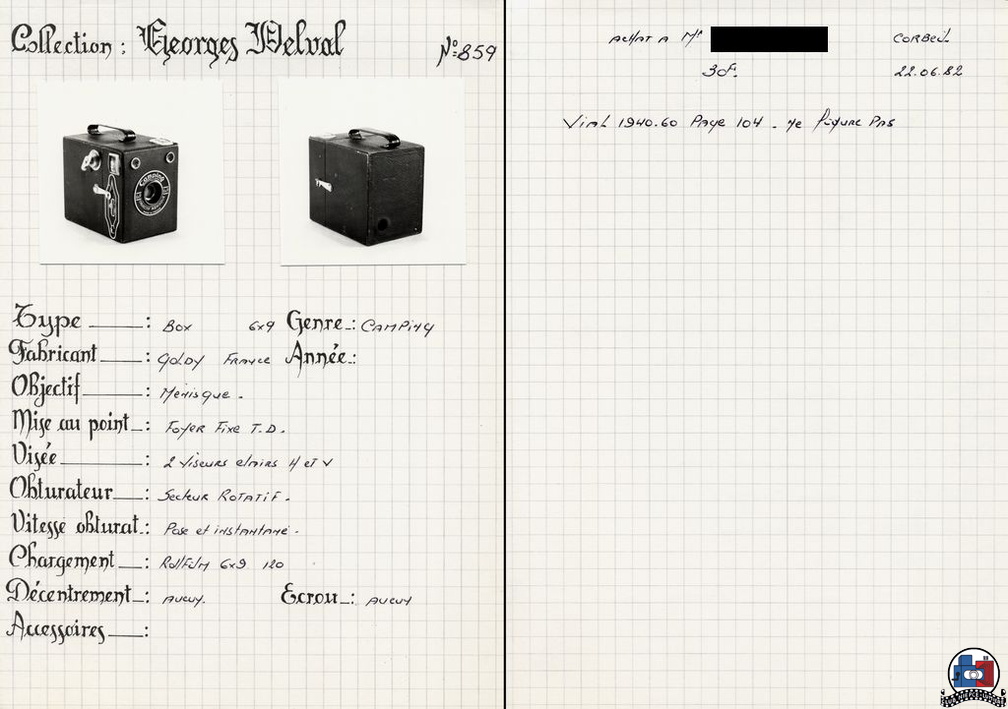 Collection : Georges Delval
N°: 859
Camping
Type : Box 6x9 Genre : Camping
Fabricant : Goldy France Année :
Objectif : Ménisque .
Mise au point : Foyer Fixe T.D.
Visée : 2 viseurs clairs H et V
Obturateur : Secteur Rotatif .
Vitesse obturat. : Pose et instantané .
Chargement : Rollfilm 6x9 120
Décentrement : Aucun. Ecrou : Aucun
Accessoires :
Achat a Mr Corbeil
30F. 22.06.82
Vial 1940.60 Page 104 . ne figure Pas